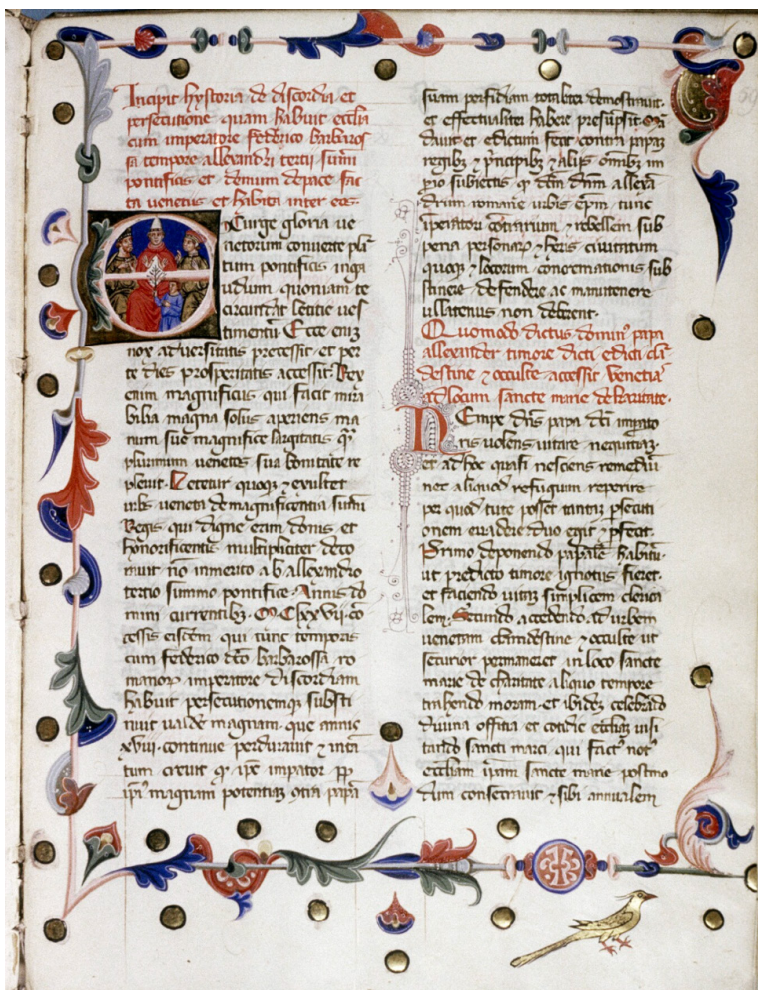 Incipit hystoria de discordia et
persecutione quam habuit ecclia
cum imperatore federico barbaros
sa tempore allexandri tertii sumi
pontificis et demum de pace fac
ta venetiis et habita inter eos.
Exurge gloria ve
netorum converte
tum pontificis
udium quoniam te
circundat letitie ves
timentu Ecce enim
nox adversitatis precessit et per
te dies prosperitatis accessit. Rex
enim magnificus qui facit mira
bilia magna solus aperiens ma
num sue magnifice largitatis
plurimum venetos sua bonitate re
plevit. Letetur quoqz et exultet
urbs veneta de magnificentia sumi
Regis qui digne eam donis et
honorificentiis multipliciter deco
ravit no inmerito ab allexandro
tertio summo pontifice. Annis do
mini currentibz. MClxxvii. co
cessis eisdem qui tunc temporis
cum federico dco barbarossa ro
manor imperatore discordiam
habuit persecutionemqz susti
nuit valde magnam. que annis
xviii. continue perduravit et in
tum crevit q ipe impator
ipi magnam potentiam contra papa
suam perfidiam totaliter demostravit.
et effectualiter habere presupsit. Ma
davit et edictum fecit contra papam
regibz et principibz et aliis omibz im
pio subiectis q dcm dnm allexa
drum romane urbis epm. tunc
iperatori cotrarium et rebellem sub
pena personar et heris civitatum
quoqz et locorum concremationis sub
stinere. defendere ac manutenere
ullatenus non deberent.
Quomodo dictus domin papa
allexander timore dicti edicti cla
destine et occulte accessit venetias
ad locum sancte marie de karitate.
Nempe dns papa dci impato
ris volens vitare nequitiaz.
et ad hoc quasi nesciens remediu
nec aliquod refugium reperire
per quod tute posset tantaz psecuti
onem evadere duo egit et pfecit.
Primo deponendo papale habitu
ut predicto timore ignotus fieret.
et faciendo vitaz simplicem clerica
lem. Secundo accedendo ad urbem
venetam clandestine et occulte ut
securior permaneret in loco sancte
marie de charitate aliquo tempore
trahendo moram. et ibidez celebrado
divina offitia et cotidie eccliaz visi
tando sancti marci. qui fact not
eccliam ipam sancte marie postmo
dum consecravit et sibi annualem